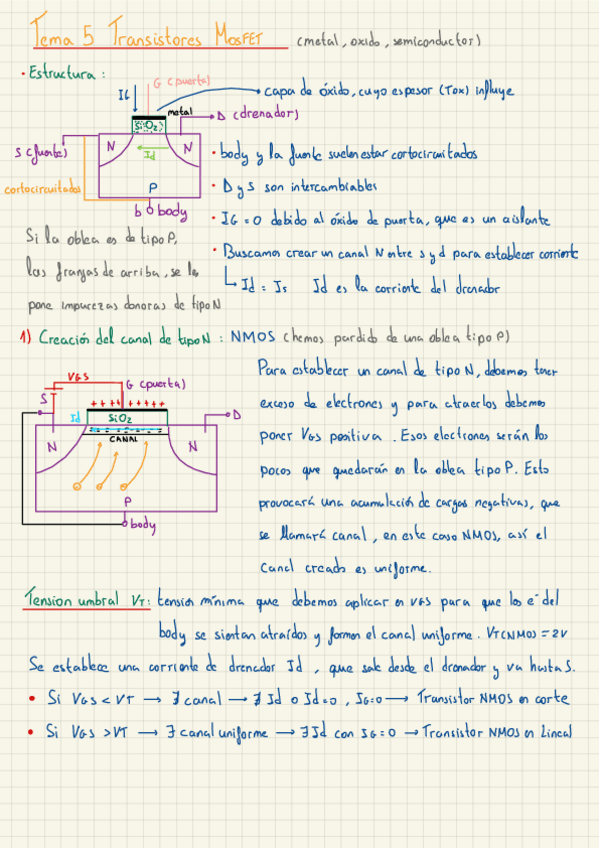 Tema 5 Transistores MosFET (metal, oxido, semiconductor)
• Estructura:
G (puerta)
IG
capa de óxido, cuyo espesor (Tox) influye
metal
SiO2
D (drenador)
S (fuente)
N
Id
N
cortocircuitados
P
b body
• body y la fuente suelen estar cortocircuitados
• D y S son intercambiables
• IG = 0 debido al óxido de puerta, que es un aislante
• Buscamos crear un canal N entre s y d para establecer corriente
↳ Id = Is Id es la corriente del drenador
Si la oblea es de tipo P,
las franjas de arriba, se les
pone impurezas donoras de tipo N
1) Creación del canal de tipo N: NMOS (hemos partido de una oblea tipo P)
VGS
G (puerta)
S
++++ ++++
Id
SiO2
D
CANAL
N
N
P
body
Para establecer un canal de tipo N, debemos tener
exceso de electrones y para atraerlos debemos
poner VGS positiva. Esos electrones serán los
pocos que quedarán en la oblea tipo P. Esto
provocará una acumulación de cargas negativas, que
se llamará canal, en este caso NMOS, así el
canal creado es uniforme.
Tension umbral VT: tensión mínima que debemos aplicar en VGS para que los e⁻ del
body se sientan atraídos y formen el canal uniforme. VT(NMOS) = 2V
Se establece una corriente de drenador Id, que sale desde el drenador y va hasta S.
• Si VGS < VT → ∄ canal → ∄ Id o Id=0, IG=0 → Transistor NMOS en corte
• Si VGS > VT → ∃ canal uniforme → ∃ Id con IG=0 → Transistor NMOS en Lineal